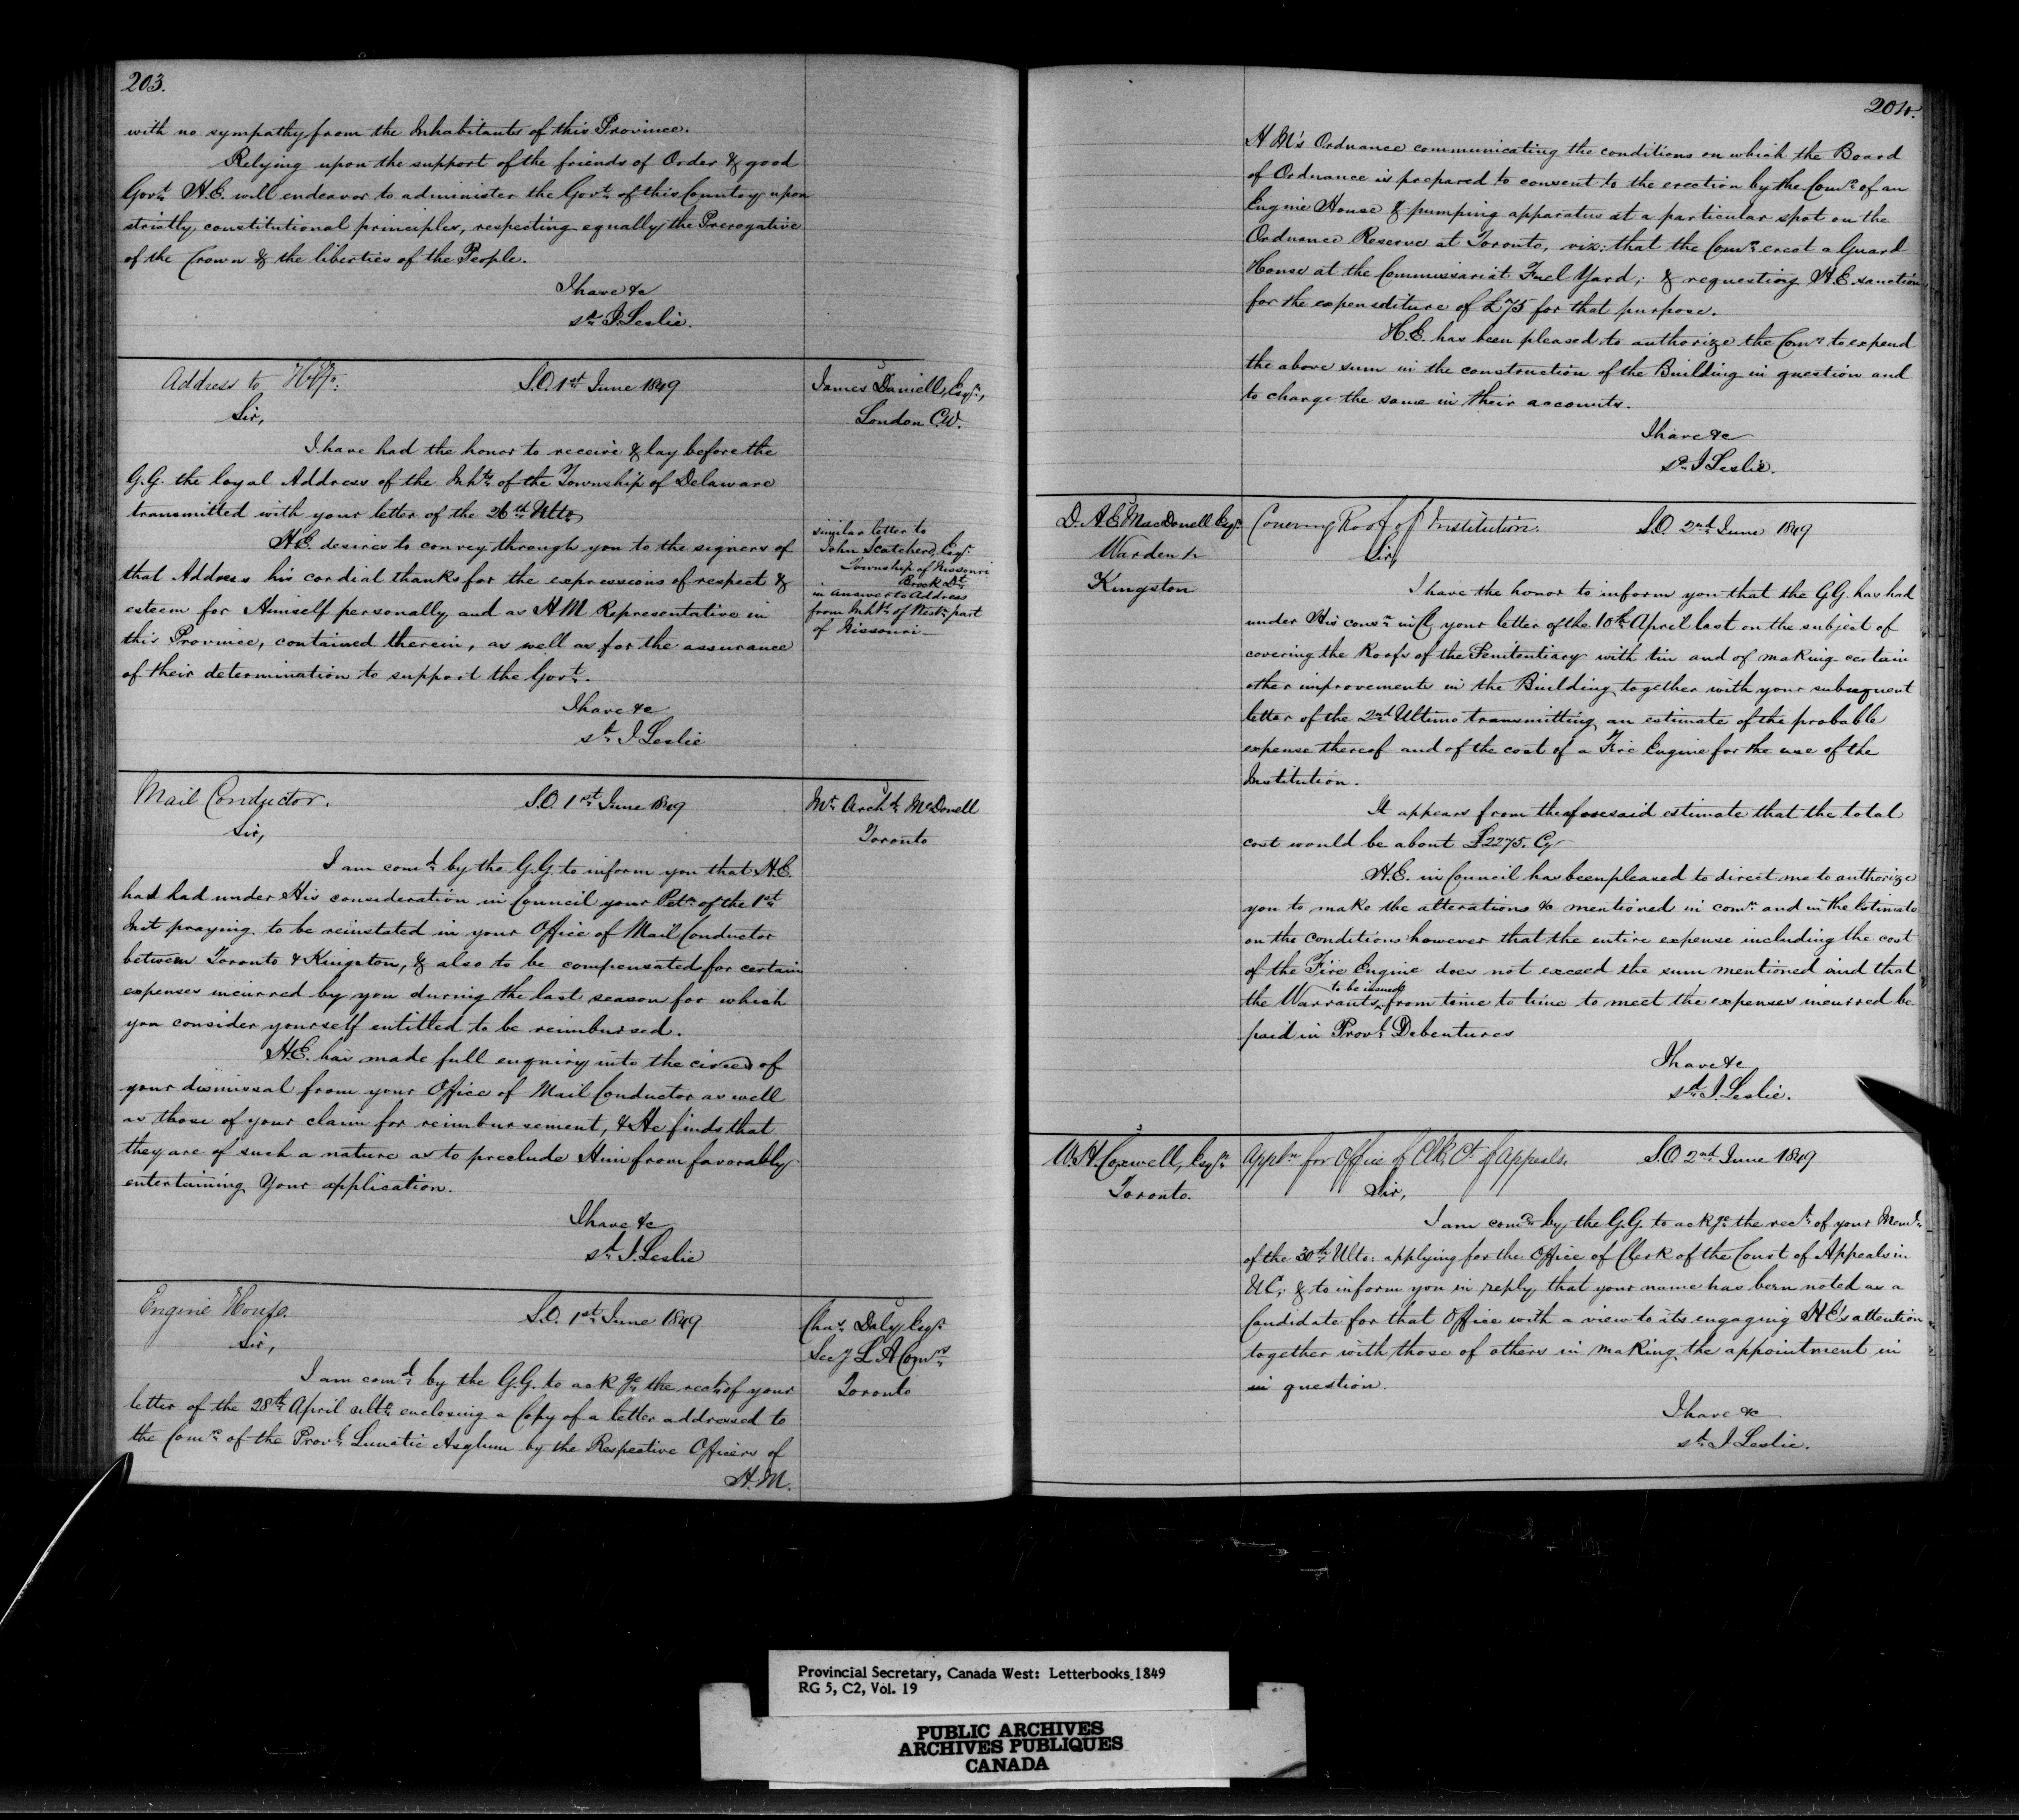 203.
with no sympathy from the Inhabitants of this Province.
Relying upon the support of the friends of Order & good
Govt. H.E. will endeavor to administer the Govt. of this Country upon
strictly constitutional principles, respecting equally the Prerogative
of the Crown & the liberties of the People.
I have &c
sd. J. Leslie.
Address to
S.O. 1st June 1849
James Daniell, Esqr.,
London C.W.
Sir,
I have had the honor to receive & lay before the
G.G. the loyal Address of the Inhts. of the Township of Delaware
transmitted with your letter of the 26th Ulto.
H.E. desires to convey through you to the signers of
that Address his cordial thanks for the expressions of respect &
esteem for Himself personally and as H M Representative in
this Province, contained therein, as well as for the assurance
of their determination to support the Govt.
I have &c
sd. J Leslie
similar letter to
John Scatcherd, Esqr.
Township of Nissouri
Brock Dt.
in answer to Address
from Inhts. of Westn. part
of Nissouri
Mail Conductor.
S.O. 1st June 1849
Mr. Archd. McDonell
Toronto
Sir,
I am comd. by the G.G. to inform you that H.E.
has had under His consideration in Council your Petn. of the 1st
Inst praying to be reinstated in your Office of Mail Conductor
between Toronto & Kingston, & also to be compensated for certain
expenses incurred by you during the last season for which
you consider yourself entitled to be reimbursed.
H.E. has made full enquiry into the circes of
your dismissal from your Office of Mail Conductor as well
as those of your claim for reimbursement, & He finds that
they are of such a nature as to preclude Him from favorably
entertaining Your application.
I have &c
sd. J Leslie
Engine House.
S.O. 1st June 1849
Chas. Daly Esqr.
Secy L A Comrs.
Toronto
Sir,
I am comd. by the G.G. to ackge. the rect. of your
letter of the 28th April ulto. enclosing a Copy of a letter addressed to
the Comrs. of the Provl. Lunatic Asylum by the Respective Officers of
H. M.
204.
H M's Ordnance communicating the conditions on which the Board
of Ordnance is prepared to consent to the erection by the Comrs. of an
Engine House & pumping apparatus at a particular spot on the
Ordnance Reserve at Toronto, viz: that the Comrs. erect a Guard
House at the Commissariat Fuel Yard; & requesting H.E. sanction
for the expenditure of £75 for that purpose.
H.E. has been pleased to authorize the Comrs. to expend
the above sum in the construction of the Building in question and
to charge the same in their accounts.
I have &c
sd. J Leslie.
D. A E MacDonell Esqr.
Warden &c
Kingston
Covering Roof of Institution.
S.O. 2nd June 1849
Sir,
I have the honor to inform you that the G.G. has had
under His consn. in Cl. your letter of the 10th April last on the subject of
covering the Roofs of the Penitentiary with tin and of making certain
other improvements in the Building together with your subsequent
letter of the 2nd Ultimo transmitting an estimate of the probable
expense thereof and of the cost of a Fire Engine for the use of the
Institution.
It appears from the aforesaid estimate that the total
cost would be about £2275. Cy
H.E. in Council has been pleased to direct me to authorize
you to make the alterations &c mentioned in comn. and in the Estimate
on the conditions however that the entire expense including the cost
of the Fire Engine does not exceed the sum mentioned and that
the Warrants to be issued from time to time to meet the expenses incurred be
paid in Provl. Debentures
I have &c
sd. J. Leslie.
W. H. Coxwell, Esqr.
Toronto.
Appln. for Office of Clk Ct. of Appeals.
S.O 2nd June 1849
Sir,
I am comd. by the G.G. to ackge. the rect. of your Meml.
of the 30th Ulto: applying for the Office of Clerk of the Court of Appeals in
U.C; & to inform you in reply that your name has been noted as a
Candidate for that Office with a view to its engaging H E's attention
together with those of others in making the appointment in
in question.
I have &c
sd. J Leslie.
Provincial Secretary, Canada West: Letterbooks 1849
RG 5, C2, Vol. 19
PUBLIC ARCHIVES
ARCHIVES PUBLIQUES
CANADA